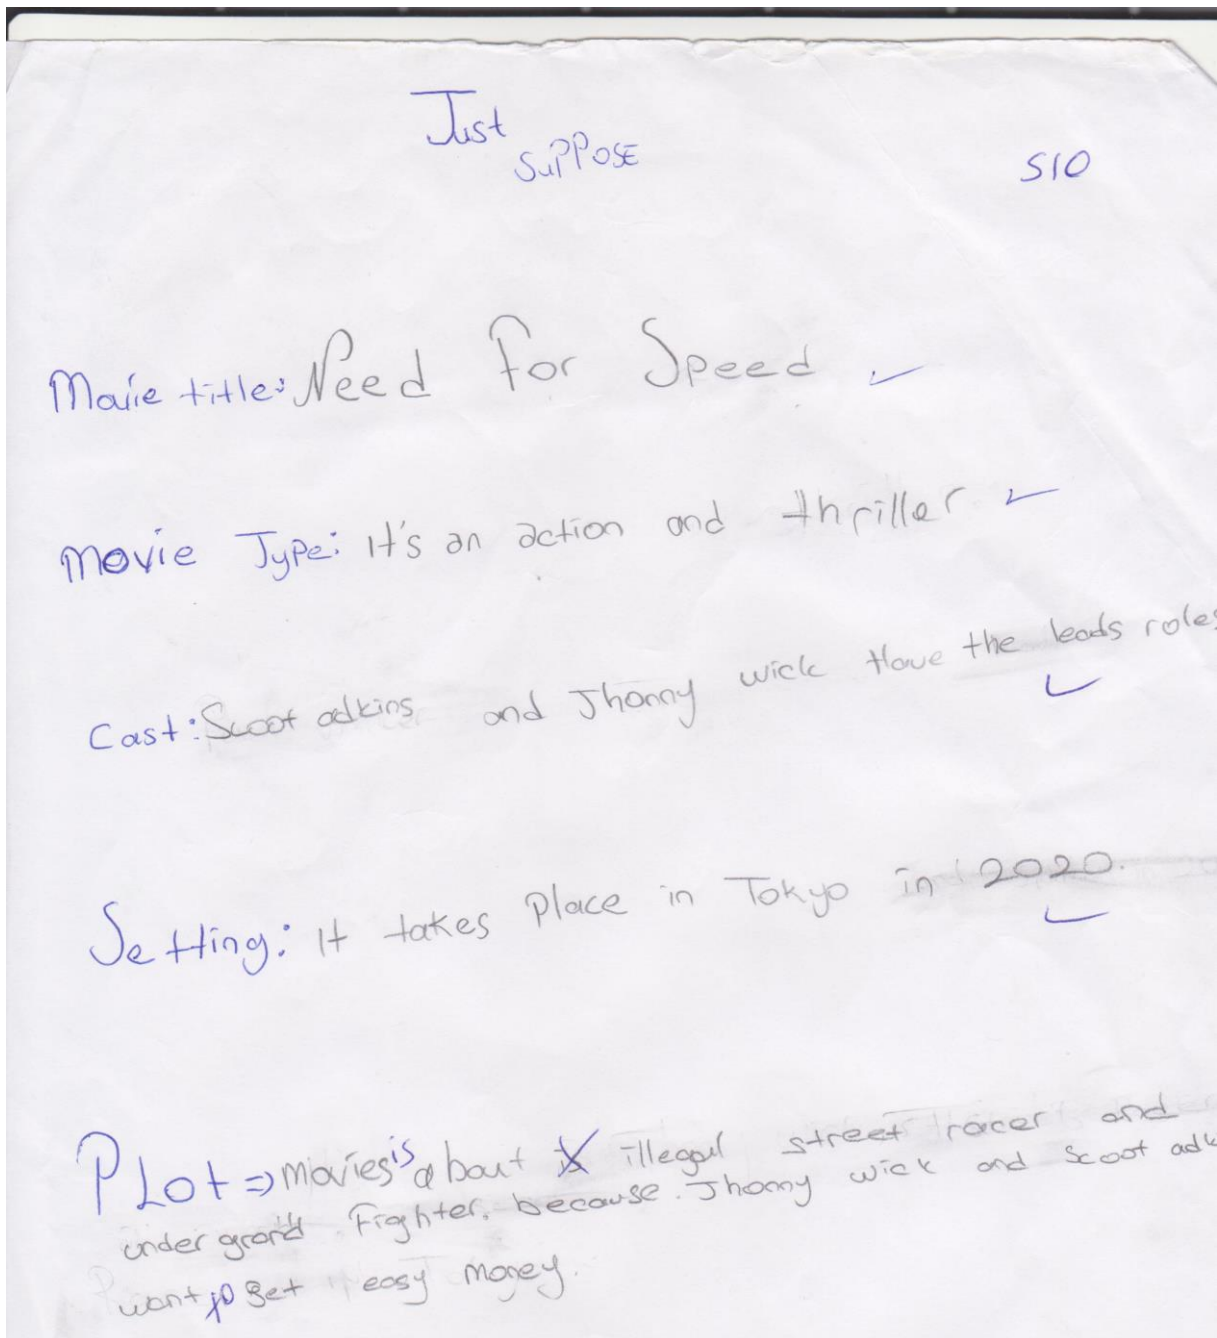 Just
SUPPOSE
S10
Movie title: Need for Speed
Movie Type: It's an action and thriller
Cast: Scoot adkins and Jhonny wick Have the leads roles
Setting: It takes place in Tokyo in 2020.
PLot => movies is about illegal street racer and
under Fighter. because. Jhonny wick and Scoot adk
want to get easy money.